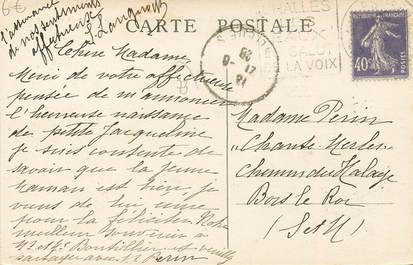 6€
l'assurance
de nos sentiments
affectueux
CARTE POSTALE
HALLES
LA VOIX
40c
POSTES
Chère Madame
Merci de votre affectueuse
pensée de m'annoncer
l'heureuse naissance
de petite Jacqueline
je suis contente de
savoir que la jeune
maman est bien, je
viens de lui
pour la féliciter. Notre
meilleur souvenir à
Mr et Me Bouteillier et veuillez
partager avec Mr Perin
Madame Perin
"Chante-Merles"
Chemin du Halage
Bois le Roi
(S et M)